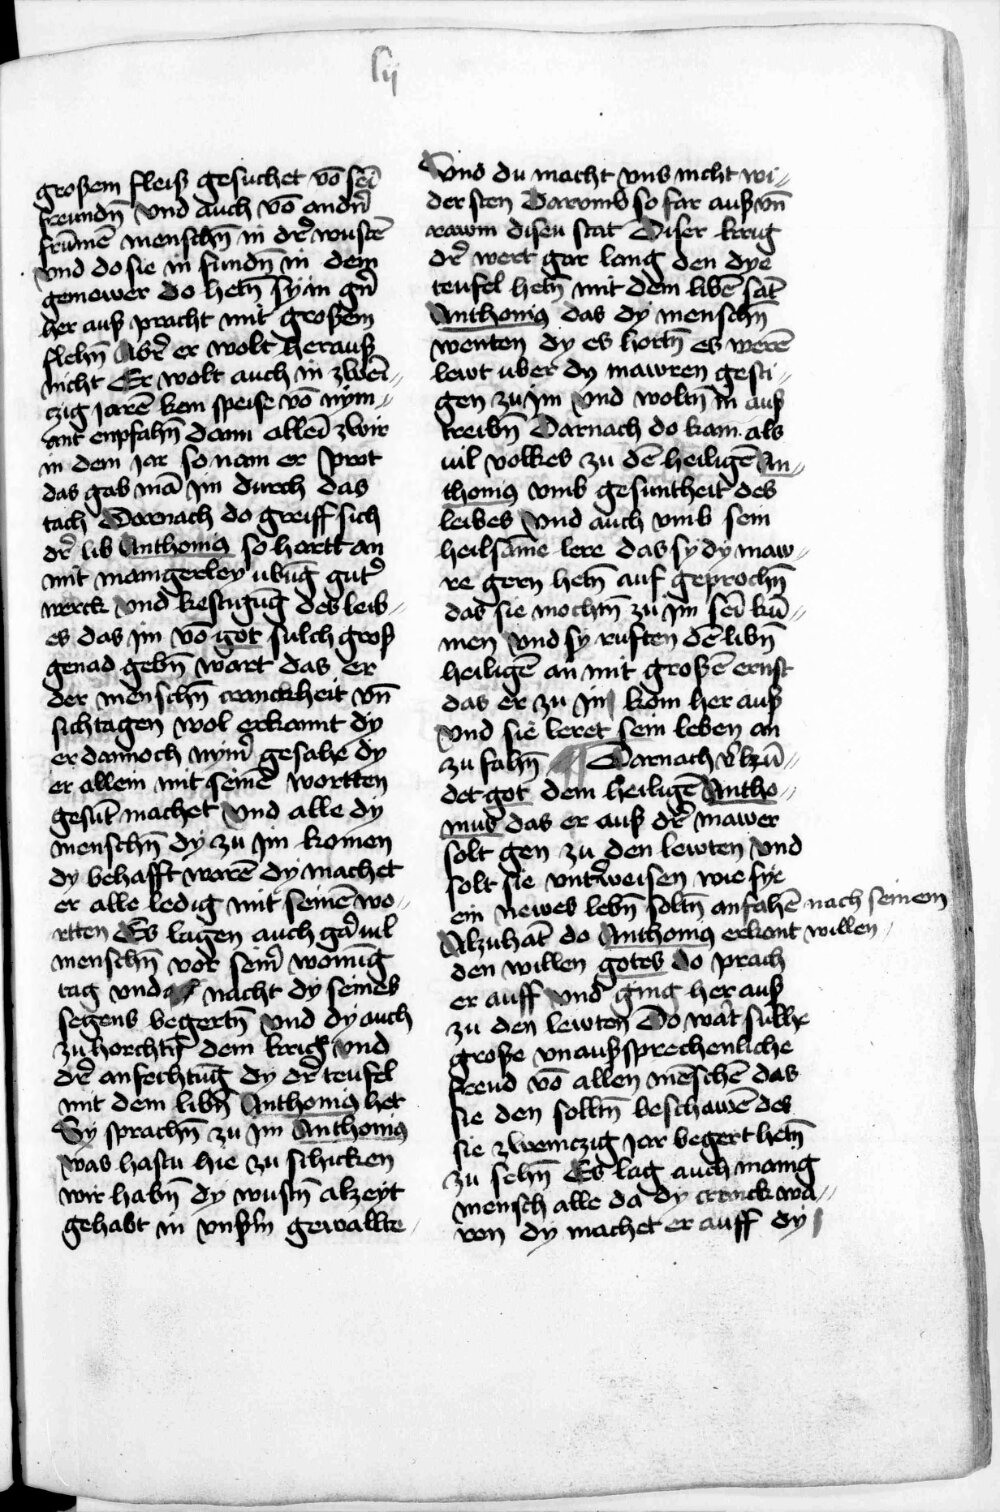 lij
großem fleiß gesuchet vō sei͞
freundn̄ vnd auch vō andn̄
frūmē menschn̄ in dr̄ wustē
vnd do sie in fundn̄ in dem
gemewer do hetn̄ sy in gn̄
her auß pracht mit großem
flehn̄ Abr̄ er wolt herauß
nicht Er wolt auch in zwei͞=
czig jarē kein speise vō nym=
ant enpfahn̄ dann allei͞ zwir
in dem jar so nam er prot
das gab mā jm durch das
tach Darnach do greiff sich
dr̄ lib Anthonig so hartt an
mit mangerley ubūg gutr̄
werck vnd kestigūg des leib=
es das jm vō got sulch groß
genad gebn̄ wart das er
der menschn̄ cranckheit vn̄
sichtagen wol erkannt dy
er dannoch nymr̄ gesahe dy
er allein mit seinē wortten
gesūt machet vnd alle dy
menschn̄ dy zu jm komen
dy behafft warē dy machet
er alle ledig mit seinē wo=
rtten Es lagen auch gar̄ vil
menschn̄ vor seinr̄ wonūg
tag vnd nacht dy seines
segens begertn̄ vnd dy auch
zu horchtn̄ dem krig vnd
dr̄ anfechtūg dy dr̄ teufel
mit dem libn̄ Anthonig het
Sy sprachn̄ zu jm Anthonig
was hastu hie zu schicken
wir habn̄ dy wustn̄ alzeyt
gehabt in vnsrm̄ gewallte
Vnd du macht vns nicht wi=
dersten Darvmb so far auß vn̄
rawm disen stat Diser krig
dr̄ wert gar lang den dye
teufel hetn̄ mit dem libē sāt
Anthonig das dy menschn̄
wenten dy es hortn̄ es werē
lewt vber dy mawren gesti=
gen zu jm vnd woltn̄ in auß
treibn̄ Darnach do kam als
vil volkes zu dē heiligē An=
thonig vmb gesuntheit des
leibes vnd auch vmb sein
heilsāme lere das sy dy maw=
re gern hetn̄ auf geprochn̄
das sie mochtn̄ zu jm sei͞ kū=
men vnd sy ruften dē libn̄
heiligē an mit großē ernst
das er zu jn kom her auß
vnd sie leret sein leben an
zu fahn̄ Darnach v̄kū=
det got dem heiligē Antho=
nius das er auß dr̄ mawer
solt gen zu den lewten vnd
solt sie vntr̄weisen wie sye
ein newes lebn̄ soltn̄ anfahē nach seinem
Alzuhāt do Anthonig erkant willen
den willen gotes do prach
er auff vnd ging her auß
zu den lewten Do wart sulche
große vnaußsprechenliche
freud vō allen mēschē das
sie den solltn̄ beschawē des
sie zweinczig jar begert hetn̄
zu sehn̄ Es lag auch manig
mensch alle da dy cranck wa=
ren dy machet er auff dy